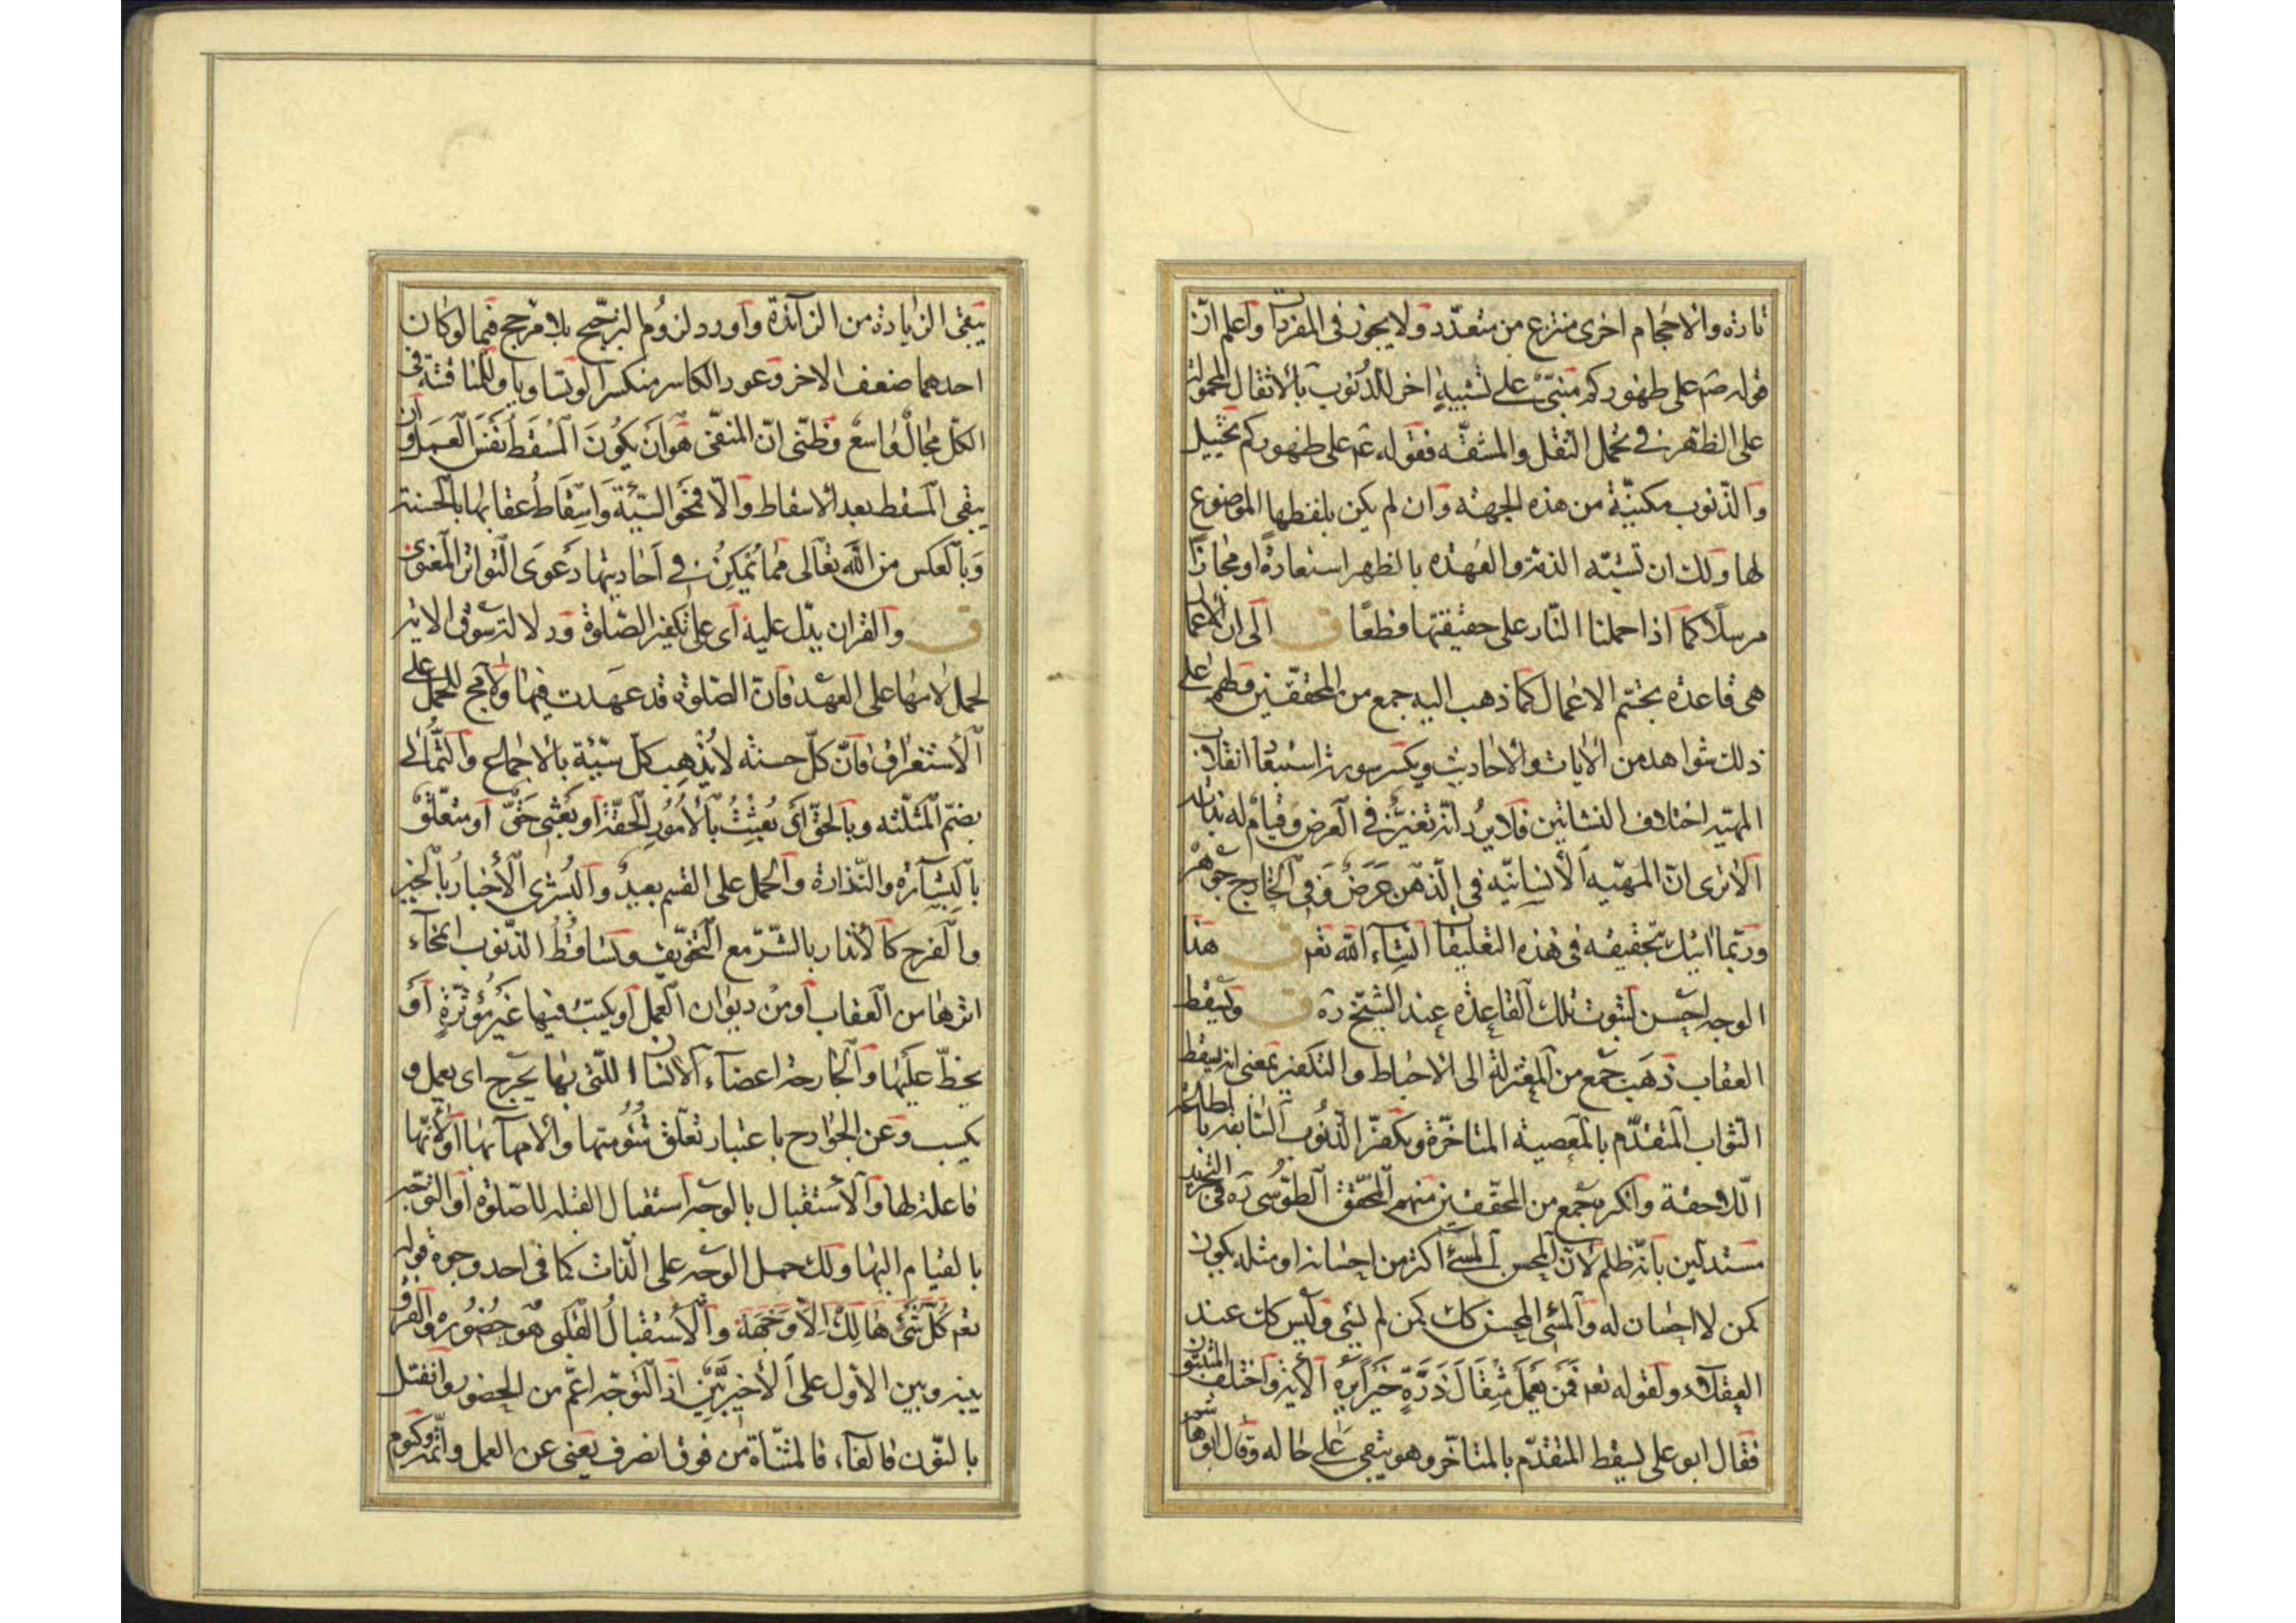 تارة والاحجام اخرى منتزع من متعدّد ولا يجوز فى المفردات واعلم انّ
قوله صم على ظهوركم مبنىّ على تشبيهٍ اخر للذّنوب بالاثقال المحمولة
على الظّهر فى تحمل الثقل والمشقّه فقوله عم على ظهوركم تخييل
والذّنوب مكنيّة من هذه الجهة وان لم يكن بلفظها الموضوع
لها ولك ان تشبّه الذمّة والعهدة بالظهر استعارةً او مجازًا
مرسلًا كما اذا حملنا النّار على حقيقتها قطعًا ق الى ان الاعمال
هى قاعدة تجسّم الاعمال كما ذهب اليه جمع من المحققين ولهم على
ذلك شواهد من الايات والاحاديث ويكسر سورة استبعاد انقلاب
المهيّه اختلاف النشاتين فلا يرد انّه تغيّر فى العرض وقيام له بذاته
الا ترى انّ المهيّه الانسانيّه فى الذّهن عرض وفى الخارج جوهر
وربّما اتيك بتحقيقه فى هذه التعليقات انشاء الله تعم ق هذا
الوجه احسن لثبوت تلك القاعدة عند الشيخ ره ق ويسقط
العقاب ذهب جمع من المعتزلة الى الاحباط والتكفير بمعنى انه يسقط
الثواب المتقدّم بالمعصية المتاخّرة ويكفّر الذّنوب السّابقة بالطاعة
اللّاحقة وانكره جمع من المحقّقين منهم المحقّق الطّوسى ره فى التجريد
مستدلّين بانّه ظلم لانّ المحسن المسئ اكثر من احسانه او مثله يكون
كمن لا احسان له والمسئ المحسن كك كمن لم يسئ وليس كك عند
العقلاء ولقوله تعم فمن يعمل مثقال ذرّةٍ خيرًا يره الاية واختلف المثبتون
فقال ابو على يسقط المتقدّم بالمتاخّر وهو يبقى على حاله وقال ابو هاشم
يبقى الزّيادة من الزّائدة واورد لزوم الترجّح بلا مرجح فيما لو كان
احدهما ضعف الاخر وعود الكاسر منكسرا لو تساويا وللمناقشة فى
الكلّ مجالٌ واسع وظنّى انّ المنفىّ هو ان يكون المسقط نفس العمل وان
يبقى المسقط بعد الاسقاط والّا فمحو السيّئة واسقاط عقابها بالحسنة
وبالعكس من الله تعالى ممّا يمكن فى احاديثها دعوى التواتر المعنوى
ق والقران يدلّ عليه اى على تكفير الصّلوة ودلالته سوق الاية
لحمل لامها على العهد فانّ الصّلوة قد عهدت فيها ولا مجح للحمل على
الاستغراق فانّ كلّ حسنة لا يُذهب كلّ سيّئة بالاجماع والثّمالى
بضمّ المثلّثه وبالحقّ اى بُعِثتُ بالامور الحقّة او بَعْثِى حقّ او متعلّق
بالبشارة والنّذارة والحمل على القسم بعيدٌ والبشرى الاخبار بالخير
والفرح كالانذار بالشّرّ مع التّخويف وتساقط الذّنوب امّحاء
اثرها من العقاب او من ديوان العمل او يكتب فيها غير مؤثّرةٍ او
يخطّ عليها والجارحة اعضاء الانسان اللّتى بها يجرح اى يعمل و
يكسب وعن الجوارح باعتبار تعلّق شئومتها والامها بها او لانّها
فاعلة لها والاستقبال بالوجه استقبال القبلة للصّلوة او التوجّه
بالقيام اليها ولك حمل الوجه على الذّات كما فى احد وجوه قوله
تعم كلّ شئ هالك الّا وجهه والاستقبال القلبى هو حضوره والفرق
بينه وبين الاوّل على الاخيرين اذ التوجّه اعمّ من الحضور وانفتل
بالنّون فالفاء فالمثنّاة من فوق انصرف يعنى عن العمل واتمّه وكيوم